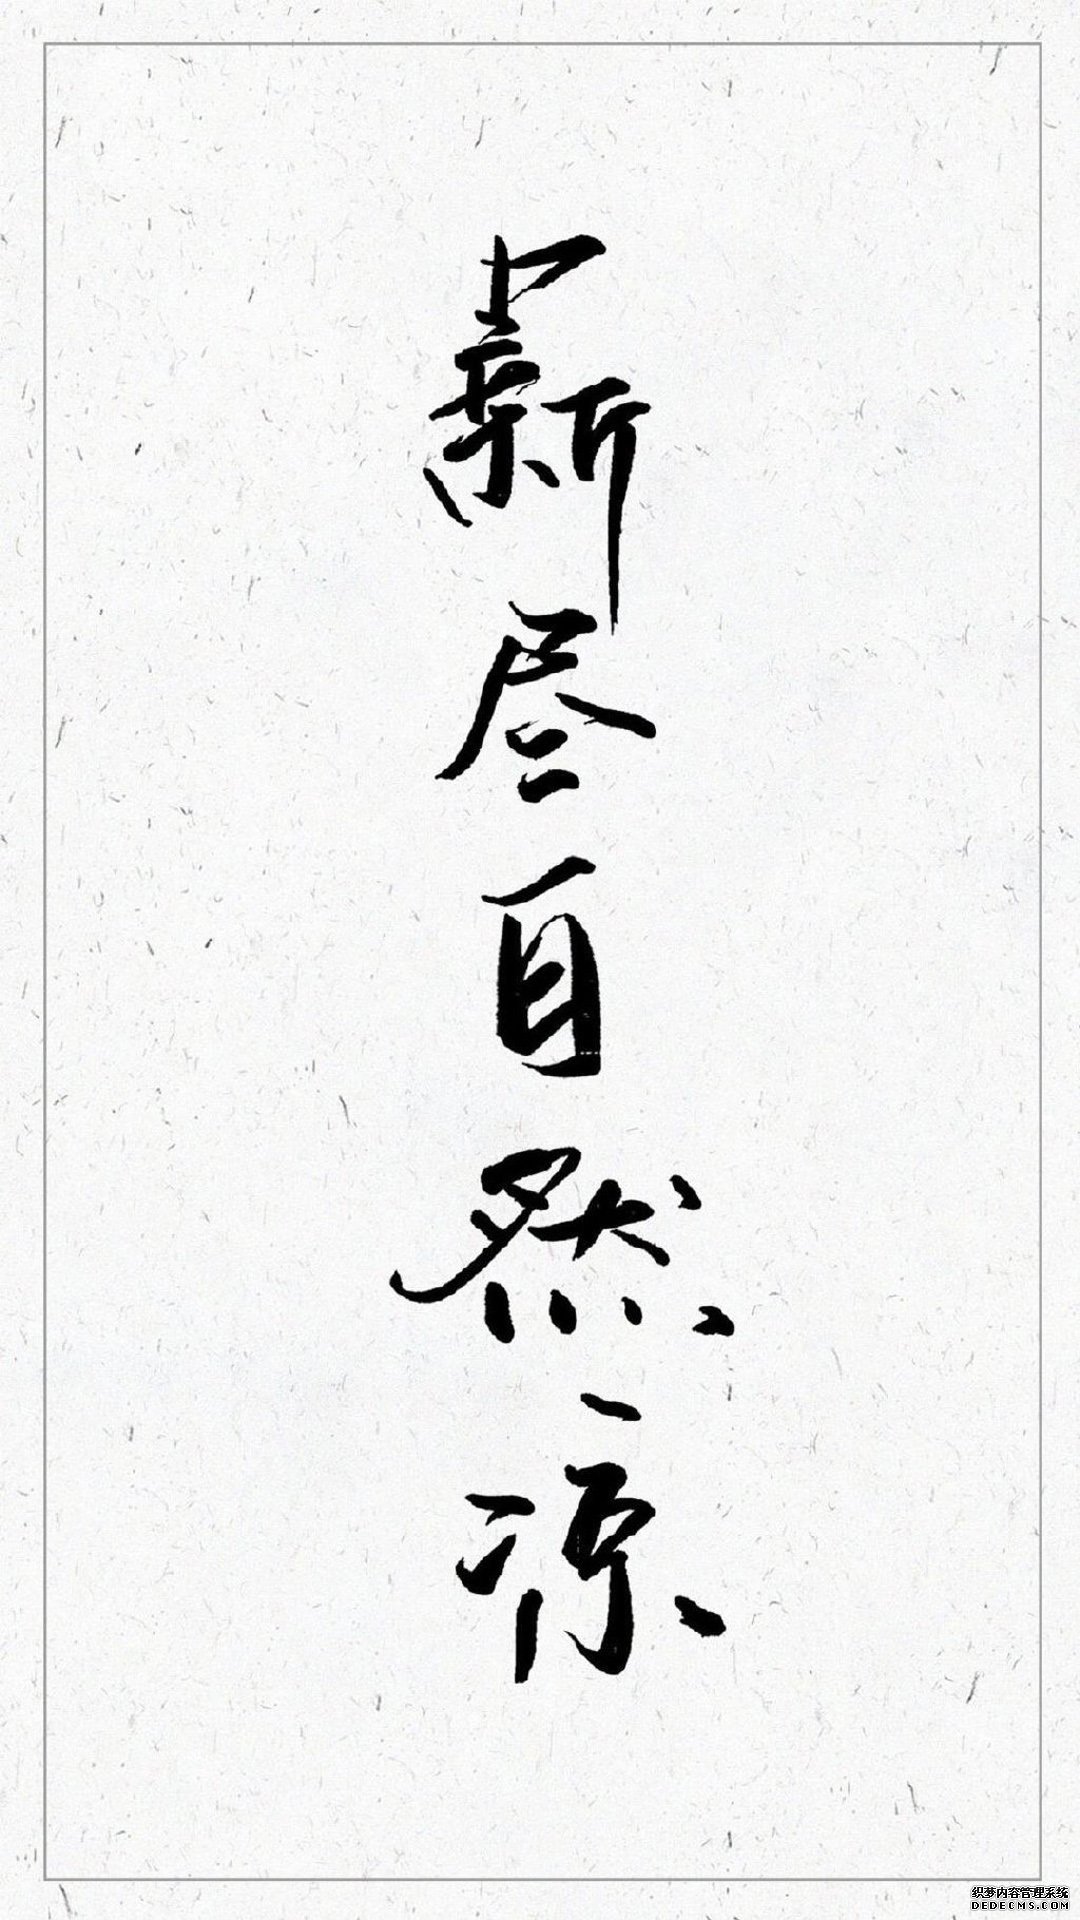 薪尽自然凉
织梦内容管理系统
DEDECMS.COM